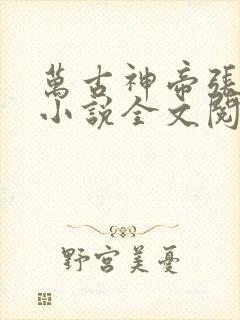 萬古神帝張
小說全文閱
野宮美憂